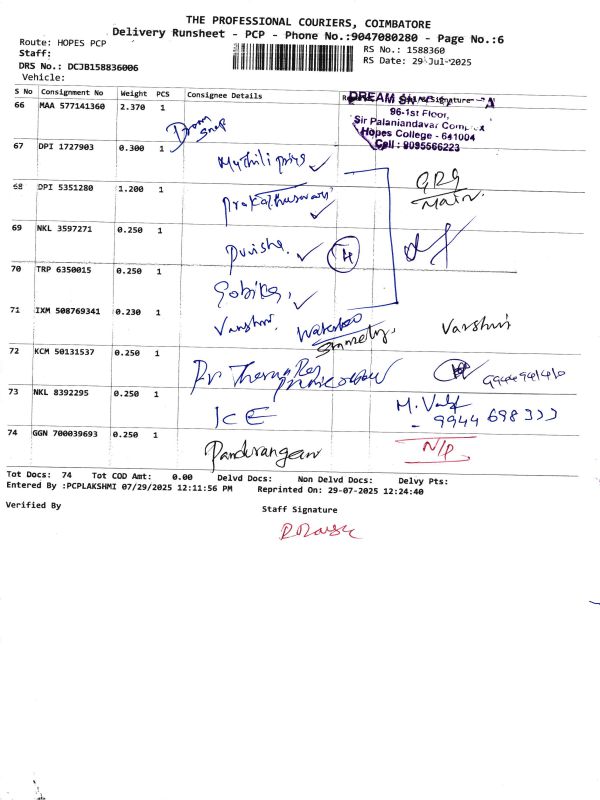 THE PROFESSIONAL COURIERS, COIMBATORE
Delivery Runsheet - PCP - Phone No.:9047080280 - Page No.:6
Route: HOPES PCP
Staff:
DRS No.: DCJB158836006
Vehicle:
RS No.: 1588360
RS Date: 29-Jul-2025
S No Consignment No Weight PCS Consignee Details Signature
DREAM
96-1st Floor,
Sir Palaniandavar Complex
Hopes College - 641004
Cell : 9095566223
66 MAA 577141360 2.370 1 Dream Snap
67 DPI 1727903 0.300 1 Mythili priya
68 DPI 5351280 1.200 1 GRG Main
69 NKL 3597271 0.250 1 4
70 TRP 6350015 0.250 1 Gobika,
71 IXM 508769341 0.230 1 Varshni Varshni
72 KCM 50131537 0.250 1
73 NKL 8392295 0.250 1 ICE M.
9944 698 333
74 GGN 700039693 0.250 1 Pandurangan N/P
Tot Docs: 74 Tot COD Amt: 0.00 Delvd Docs: Non Delvd Docs: Delvy Pts:
Entered By :PCPLAKSHMI 07/29/2025 12:11:56 PM Reprinted On: 29-07-2025 12:24:40
Verified By Staff Signature